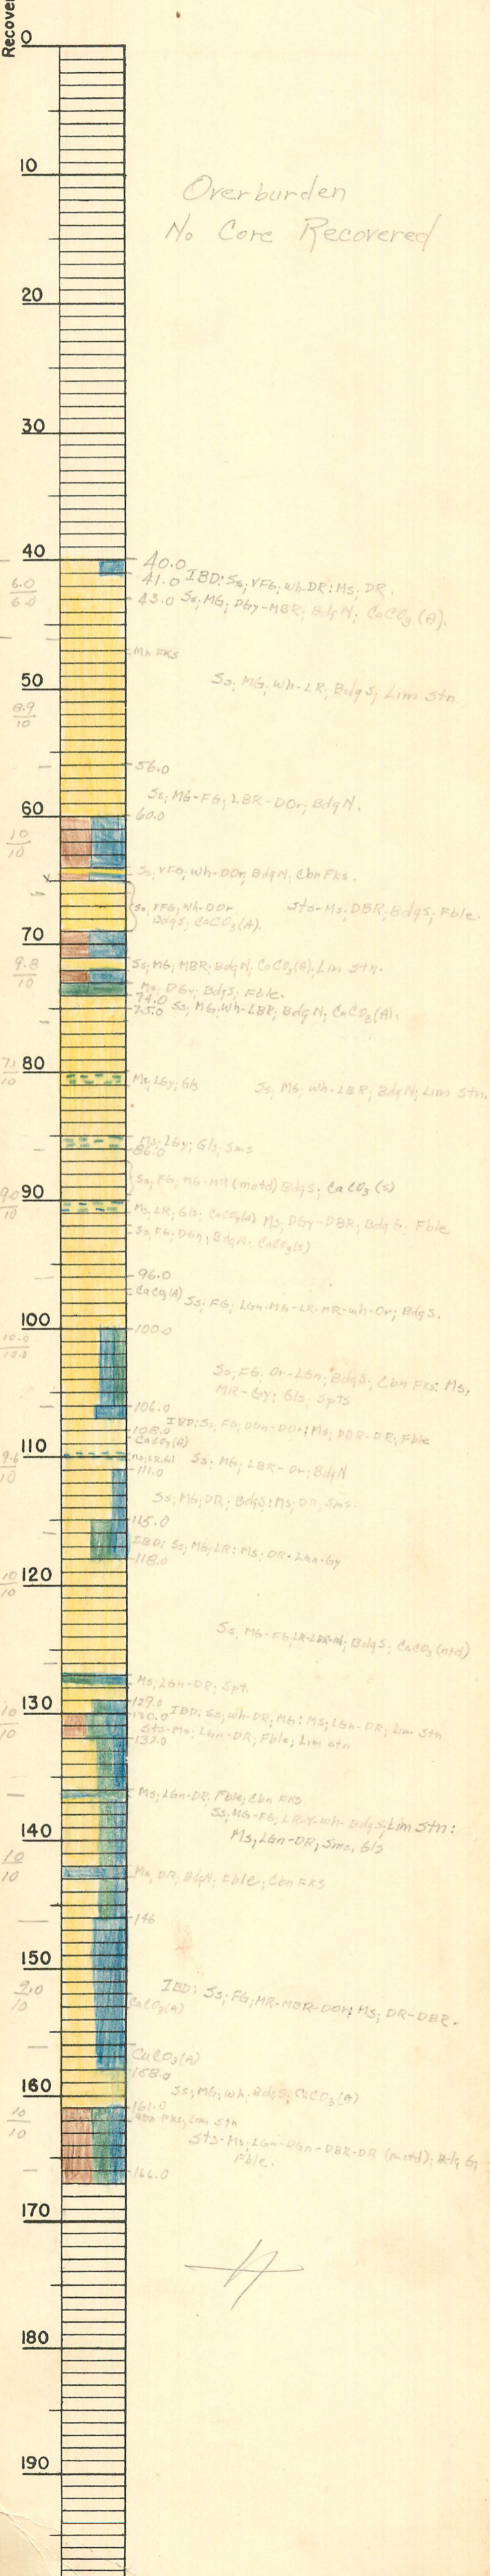 Recover
0
10
Overburden
No Core Recovered
20
30
40
40.0
41.0 IBD: Ss; VFG; Wh-DR: Ms; DR.
6.0
6.0
43.0 Ss; MG; DGy-MBR; Bdg N; CaCO3 (A).
Mn FKS
50
Ss; MG; Wh-LR; Bdg S; Lim Stn.
8.9
10
56.0
Ss; MG-FG; LBR-DOr; Bdg N.
60
60.0
10
10
Ss; VFG; Wh-DOr; Bdg N; Cbn Fks.
Ss; VFG; Wh-DOr
Bdg S; CaCO3(A).
Sts-Ms; DBR; Bdg S; Fble.
70
9.8
10
Ss; MG; MBR; Bdg N; CaCO3(A); Lim Stn.
Ms; DGy; Bdg S; Fble.
74.0
75.0 Ss; MG; Wh-LBR; Bdg N; CaCO3(A).
80
10
Ms; LGy; Gls
Ss; MG; Wh-LBR; Bdg N; Lim Stn.
Ms; LGy; Gls; Sms
86.0
Ss; FG; MG-MR (motd) Bdg S; CaCO3 (s)
90
9.0
10
Ms; LR; Gls; CaCO3(A) Ms; DGy-DBR; Bdg G; Fble
Ss; FG; DGn; Bdg N; CaCO3(s)
96.0
CaCO3(A)
Ss; FG; LGn-MG-LR-MR-Wh-Or; Bdg S.
100
100.0
10.0
10.0
Ss; FG; Or-LGn; Bdg S; Cbn Fks: Ms;
MR-Gy; Gls; Spts
106.0
IBD: Ss; FG; DGn-DOr; Ms; DBR-DR; Fble
108.0
CaCO3(A)
110
9.6
10
Ss; MG; LBR-Or; Bdg N
111.0
Ss; MG; DR; Bdg S: Ms; DR; Sms.
115.0
IBD: Ss; MG; LR: Ms; DR-LGn-Gy
118.0
120
10
10
Ss; MG-FG; Bdg S; CaCO3 (mtd)
Ms; LGn-DR; Spt.
129.0
130
130.0 IBD: Ss; Wh-DR; MG: Ms; LGn-DR; Lim Stn
10
10
Sts-Ms; LGn-DR; Fble; Lim Stn
132.0
Ms; LGn-DR; Fble; Cbn FKS
Ss; MG-FG; LR-Y-Wh-Bdg S; Lim Stn:
Ms; LGn-DR; Sms; Gls
140
10
10
Ms; DR; Bdg N; Fble; Cbn FKS
146
150
9.0
10
IBD: Ss; FG; MR-MBR-DOr; Ms; DR-DBR.
CaCO3(A)
CaCO3(A)
158.0
160
Ss; MG; Wh; Bdg S; CaCO3(A)
161.0
Cbn Fks; Lim Stn
10
10
Sts-Ms; LGn-DGn-DBR-DR (motd); Bdg G;
Fble.
166.0
170
180
190